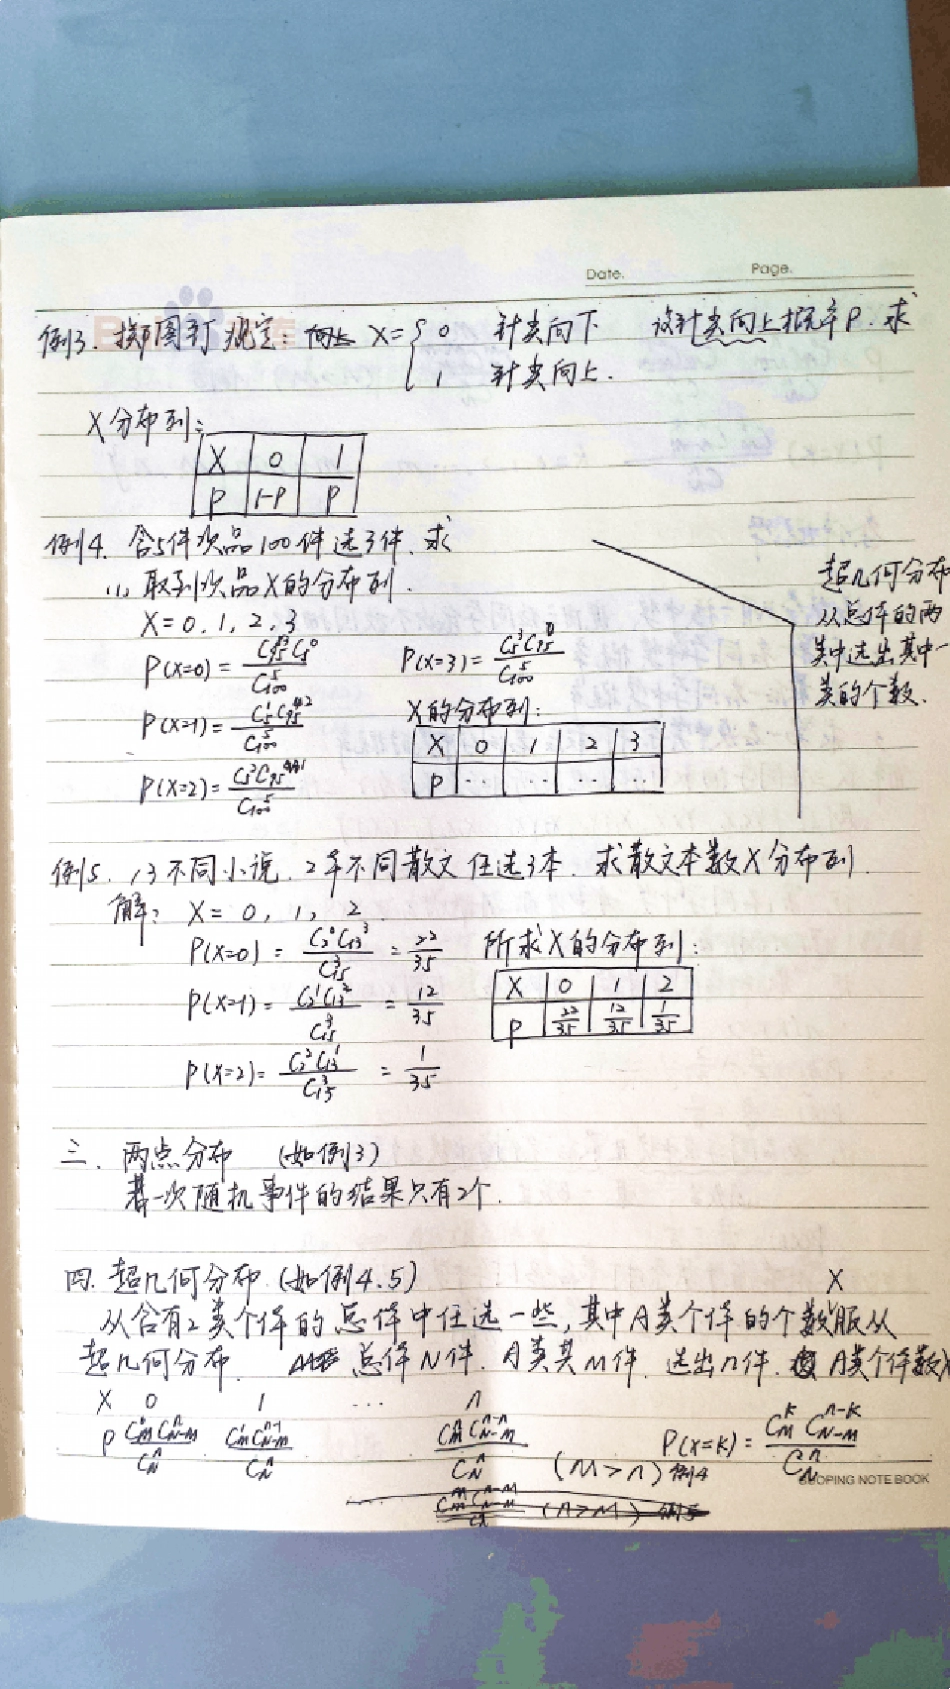 Date.
Page.
例3. 掷图钉 规定: X={ 0 针尖向下 设针尖向上概率P. 求
1 针尖向上.
X分布列:
X 0 1
P 1-P P
例4. 含5件次品100件选3件. 求
(1) 取到次品X的分布列.
X=0.1.2.3
P(X=0) = C₉₅³C₅⁰/C₁₀₀⁵
P(X=3) = C₅³C₉₅⁰/C₁₀₀⁵
P(X=1) = C₅¹C₉₅²/C₁₀₀⁵
X的分布列:
P(X=2) = C₅²C₉₅¹/C₁₀₀⁵
X 0 1 2 3
P .. .. ..
超几何分布
从总体的两
类中选出其中一
类的个数.
例5. 13不同小说. 2本不同散文 任选3本. 求散文本数X分布列.
解: X= 0, 1, 2.
P(X=0) = C₂⁰C₁₃³/C₁₅³ = 22/35
P(X=1) = C₂¹C₁₃²/C₁₅³ = 12/35
P(X=2) = C₂²C₁₃¹/C₁₅³ = 1/35
所求X的分布列:
X 0 1 2
P 22/35 12/35 1/35
三. 两点分布 (如例3)
若一次随机事件的结果只有2个.
四. 超几何分布 (如例4.5) X
从含有2类个体的总体中任选一些, 其中A类个体的个数服从
超几何分布. 总体N件. A类共M件. 选出n件. A类个体数X
X 0 1 ... n
P C_M⁰C_{N-M}ⁿ/C_Nⁿ C_M¹C_{N-M}ⁿ⁻¹/C_Nⁿ C_MⁿC_{N-M}ⁿ⁻ⁿ/C_Nⁿ (M>n) 例4
P(X=K) = C_M^K C_{N-M}^{n-K}/C_Nⁿ
(n>M) 例5
NOTE BOOK